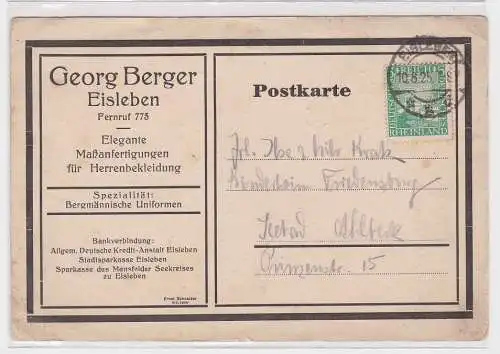 Georg Berger
Eisleben
Fernruf 773
Elegante
Maßanfertigungen
für Herrenbekleidung
Spezialität:
Bergmännische Uniformen
Bankverbindung:
Allgem. Deutsche Kredit-Anstalt Eisleben
Stadtsparkasse Eisleben
Sparkasse des Mansfelder Seekreises
zu Eisleben
Ernst Schneider
Postkarte
EISLEBEN
RHEINLAND
5
Frl. Ilse
Friedensburg
Seebad Ahlbeck
15